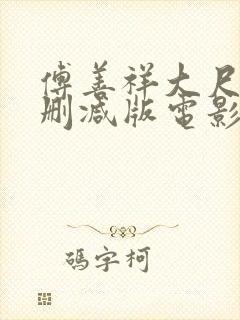 傅善祥大尺
删减版电影
码字柯